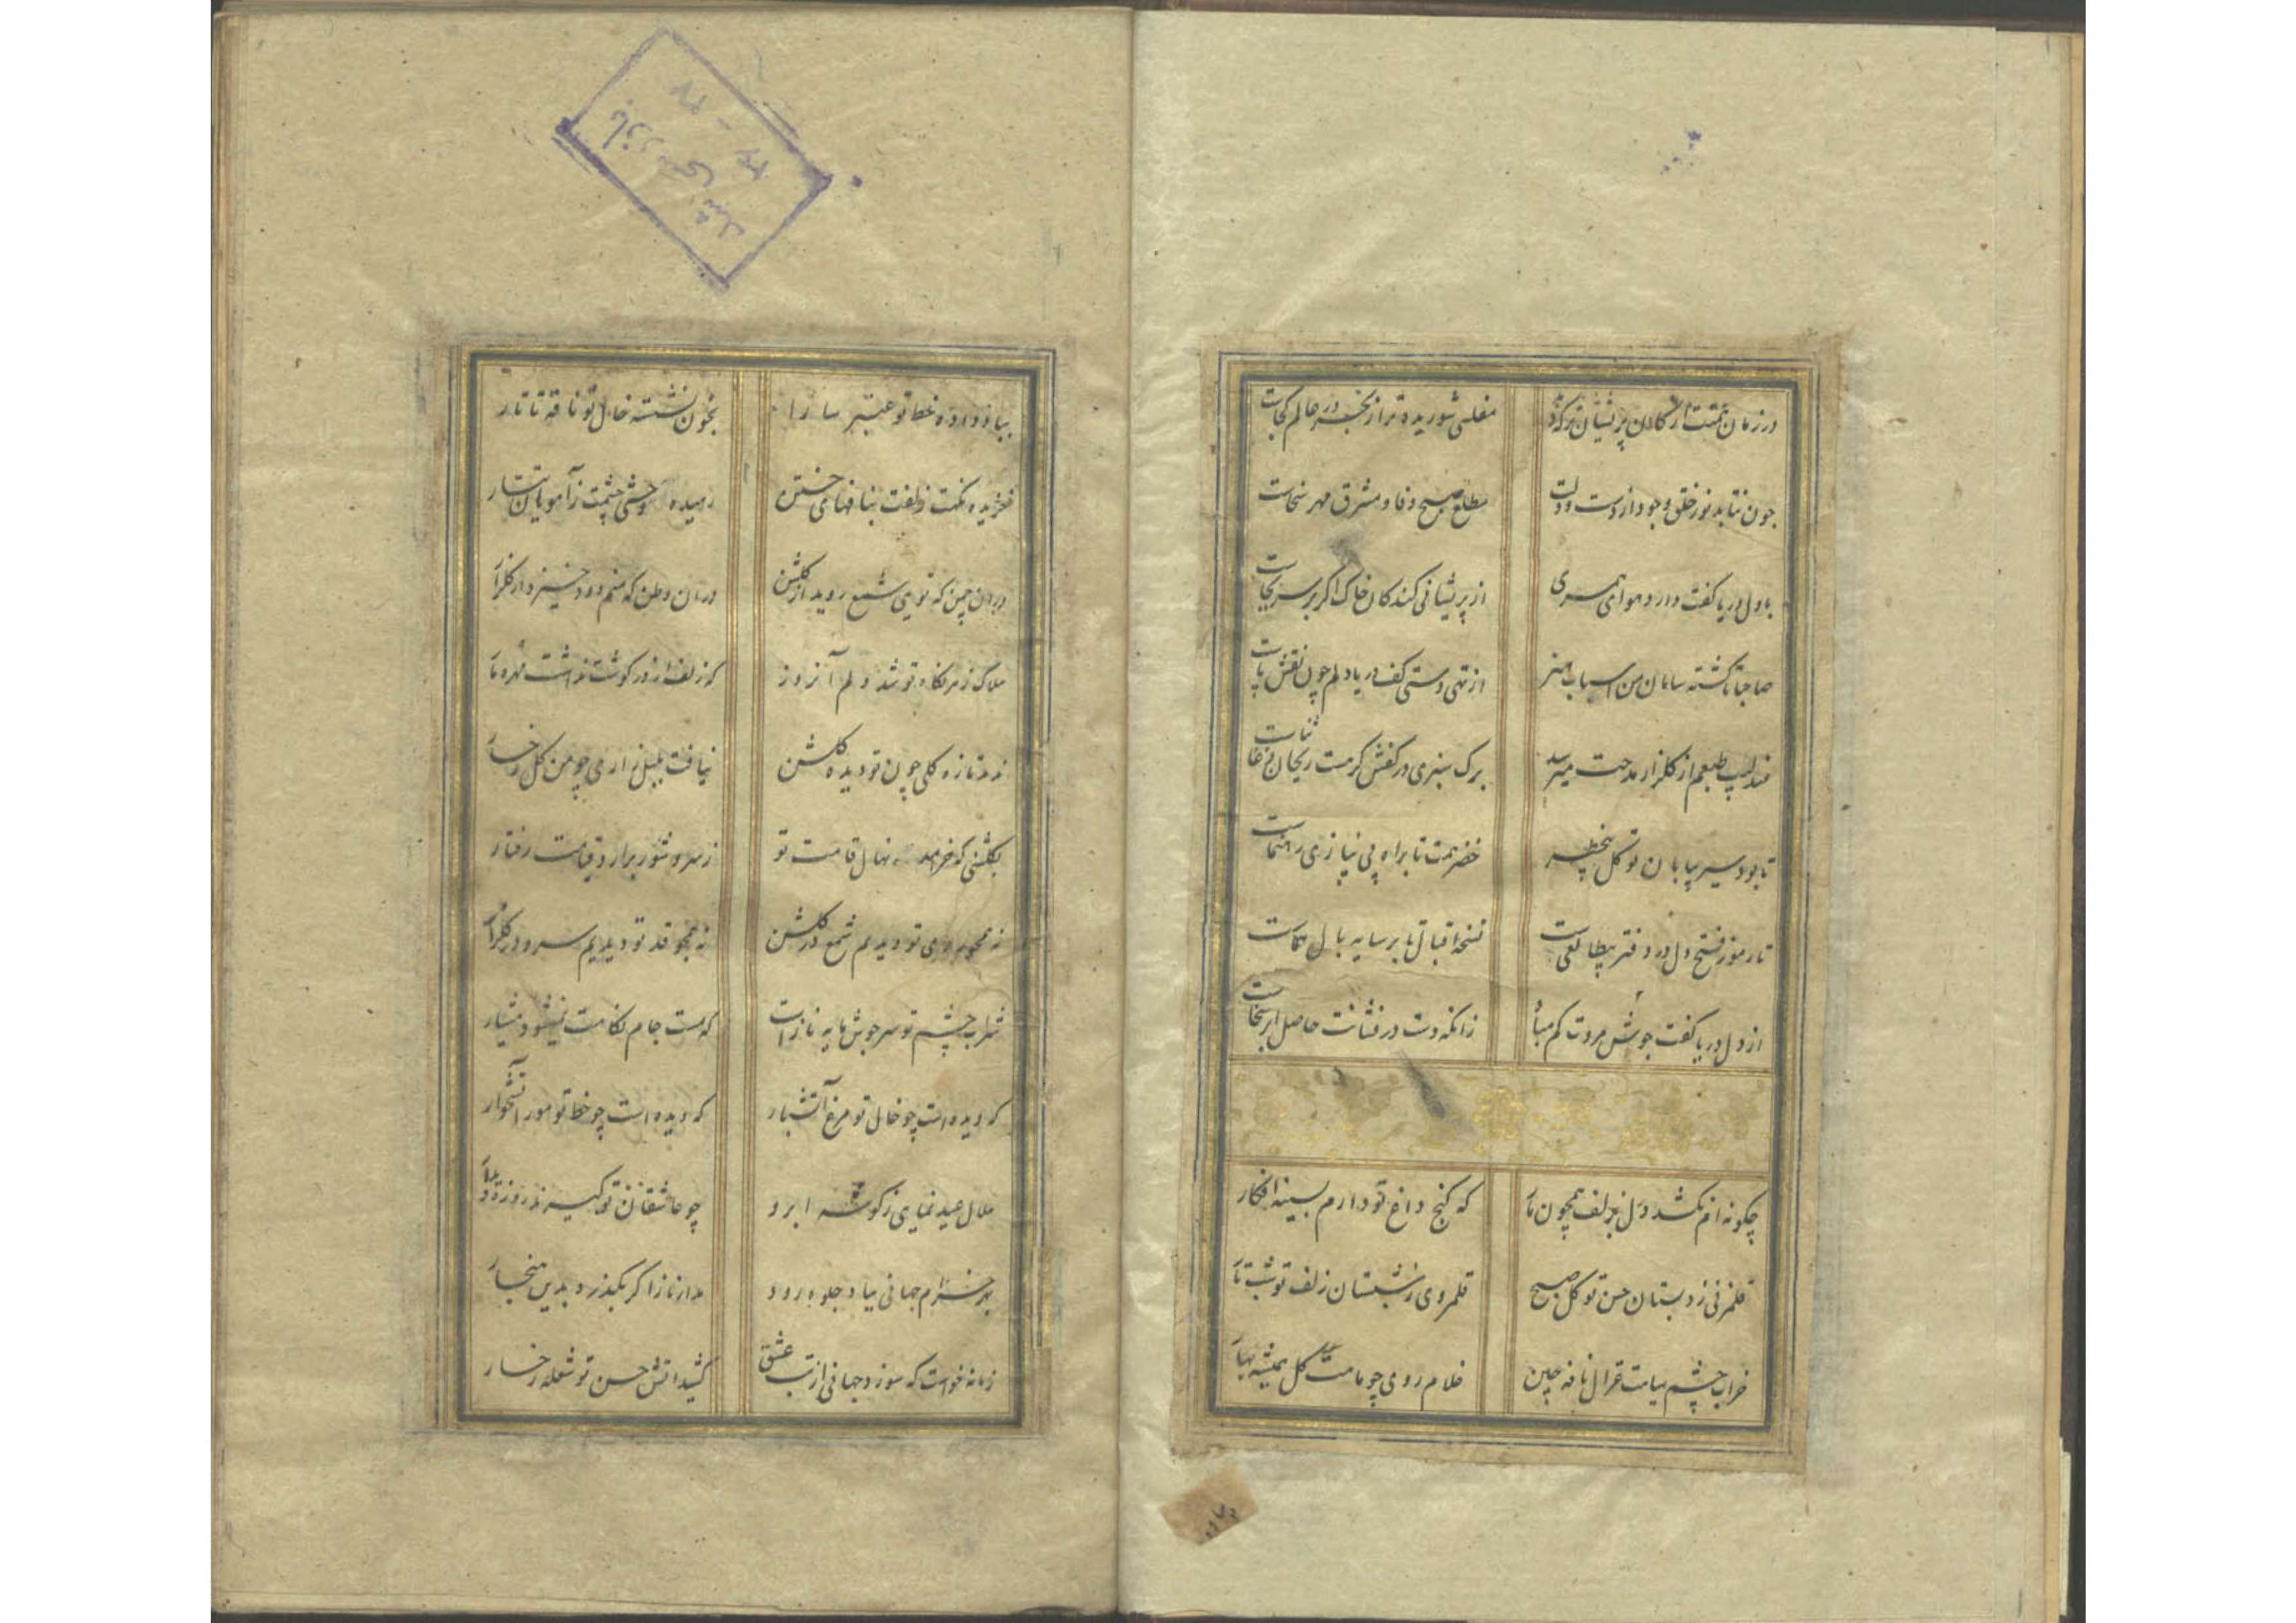 در زمان همتت از کان پریشان‌تر که دید
مفلسی شوریده‌تر از بحر در عالم کجاست
چون نتابد نور خلق وجود از دست و دلت
مطلع صبح وفا و مشرق مهر سخاست
با دل دریا کفت دارد هوای همسری
از پریشانی کند کان خاک اگر بر سر بجاست
صاحبا تا گشته سامان من اسباب هنر
از تهی دستی کف دریا دلم چون نقش پاست
عندلیب طبعم از گلزار مدحت میرسد
برگ سبزی در کفش گرمست ریحان ثناست
تا بود سیر بیابان توکل بیخطر
خضر همت تا براه بی نیازی رهنماست
تا رموز فتح دل در دفتر بیطالعیست
نسخه اقبال تا بر سایه بال هماست
از دل دریا کفت جوش مروت کم مباد
زانکه دست درفشانت حاصل ابر سخاست
چگونه ام نکشد دل بزلف همچون مار
که گنج داغ تو دارم بسینه افکار
قلمزنی ز دبستان حسن تو گل صبح
قلمروی ز شبستان زلف تو شب تار
خراب چشم سیاهت غزال نافه چین
غلام روی چو ماهت گل همیشه بهار
بباد داده خط تو عنبر سارا
بخون نشسته خال تو نافه تاتار
خزیده نکهت زلفت بنافهای ختن
رمیده وحشی چشمت ز آهویان تتار
در آن چمن که تویی شمع روید از گلشن
در آن وطن که منم دود خیزد از گلزار
هلاک زهر نگاه تو شد دلم آنروز
که زلف از در گوشت نداشت مهره مار
ندید تازه گلی چون تو دیده گلشن
نیافت بلبل زاری چو من گل رخسار
بگلشنی که خرامد نهال قامت تو
ز سرو شور برآرد قیامت رفتار
نه همچو روی تو دیدیم شمع در گلشن
نه همچو قد تو دیدیم سرو در گلزار
شراب چشم تو سرجوش مایه ناز است
که مست جام نگاهت نمیشود هشیار
که دیده است چو خال تو مرغ آتشبار
که دیده است چو خط تو مور آتشخوار
هلال عید نمایی ز گوشه ابرو
چو عاشقان تو گیرند روزه دیدار
بهر خرام جهانی بیاد جلوه رود
مدار ناز اگر بگذرد بدین هنجار
زمانه خواست که سوزد جهانی از تب عشق
کشید آتش حسن تو شعله رخسار
بازرسی شد
۳۶ - ۳۷